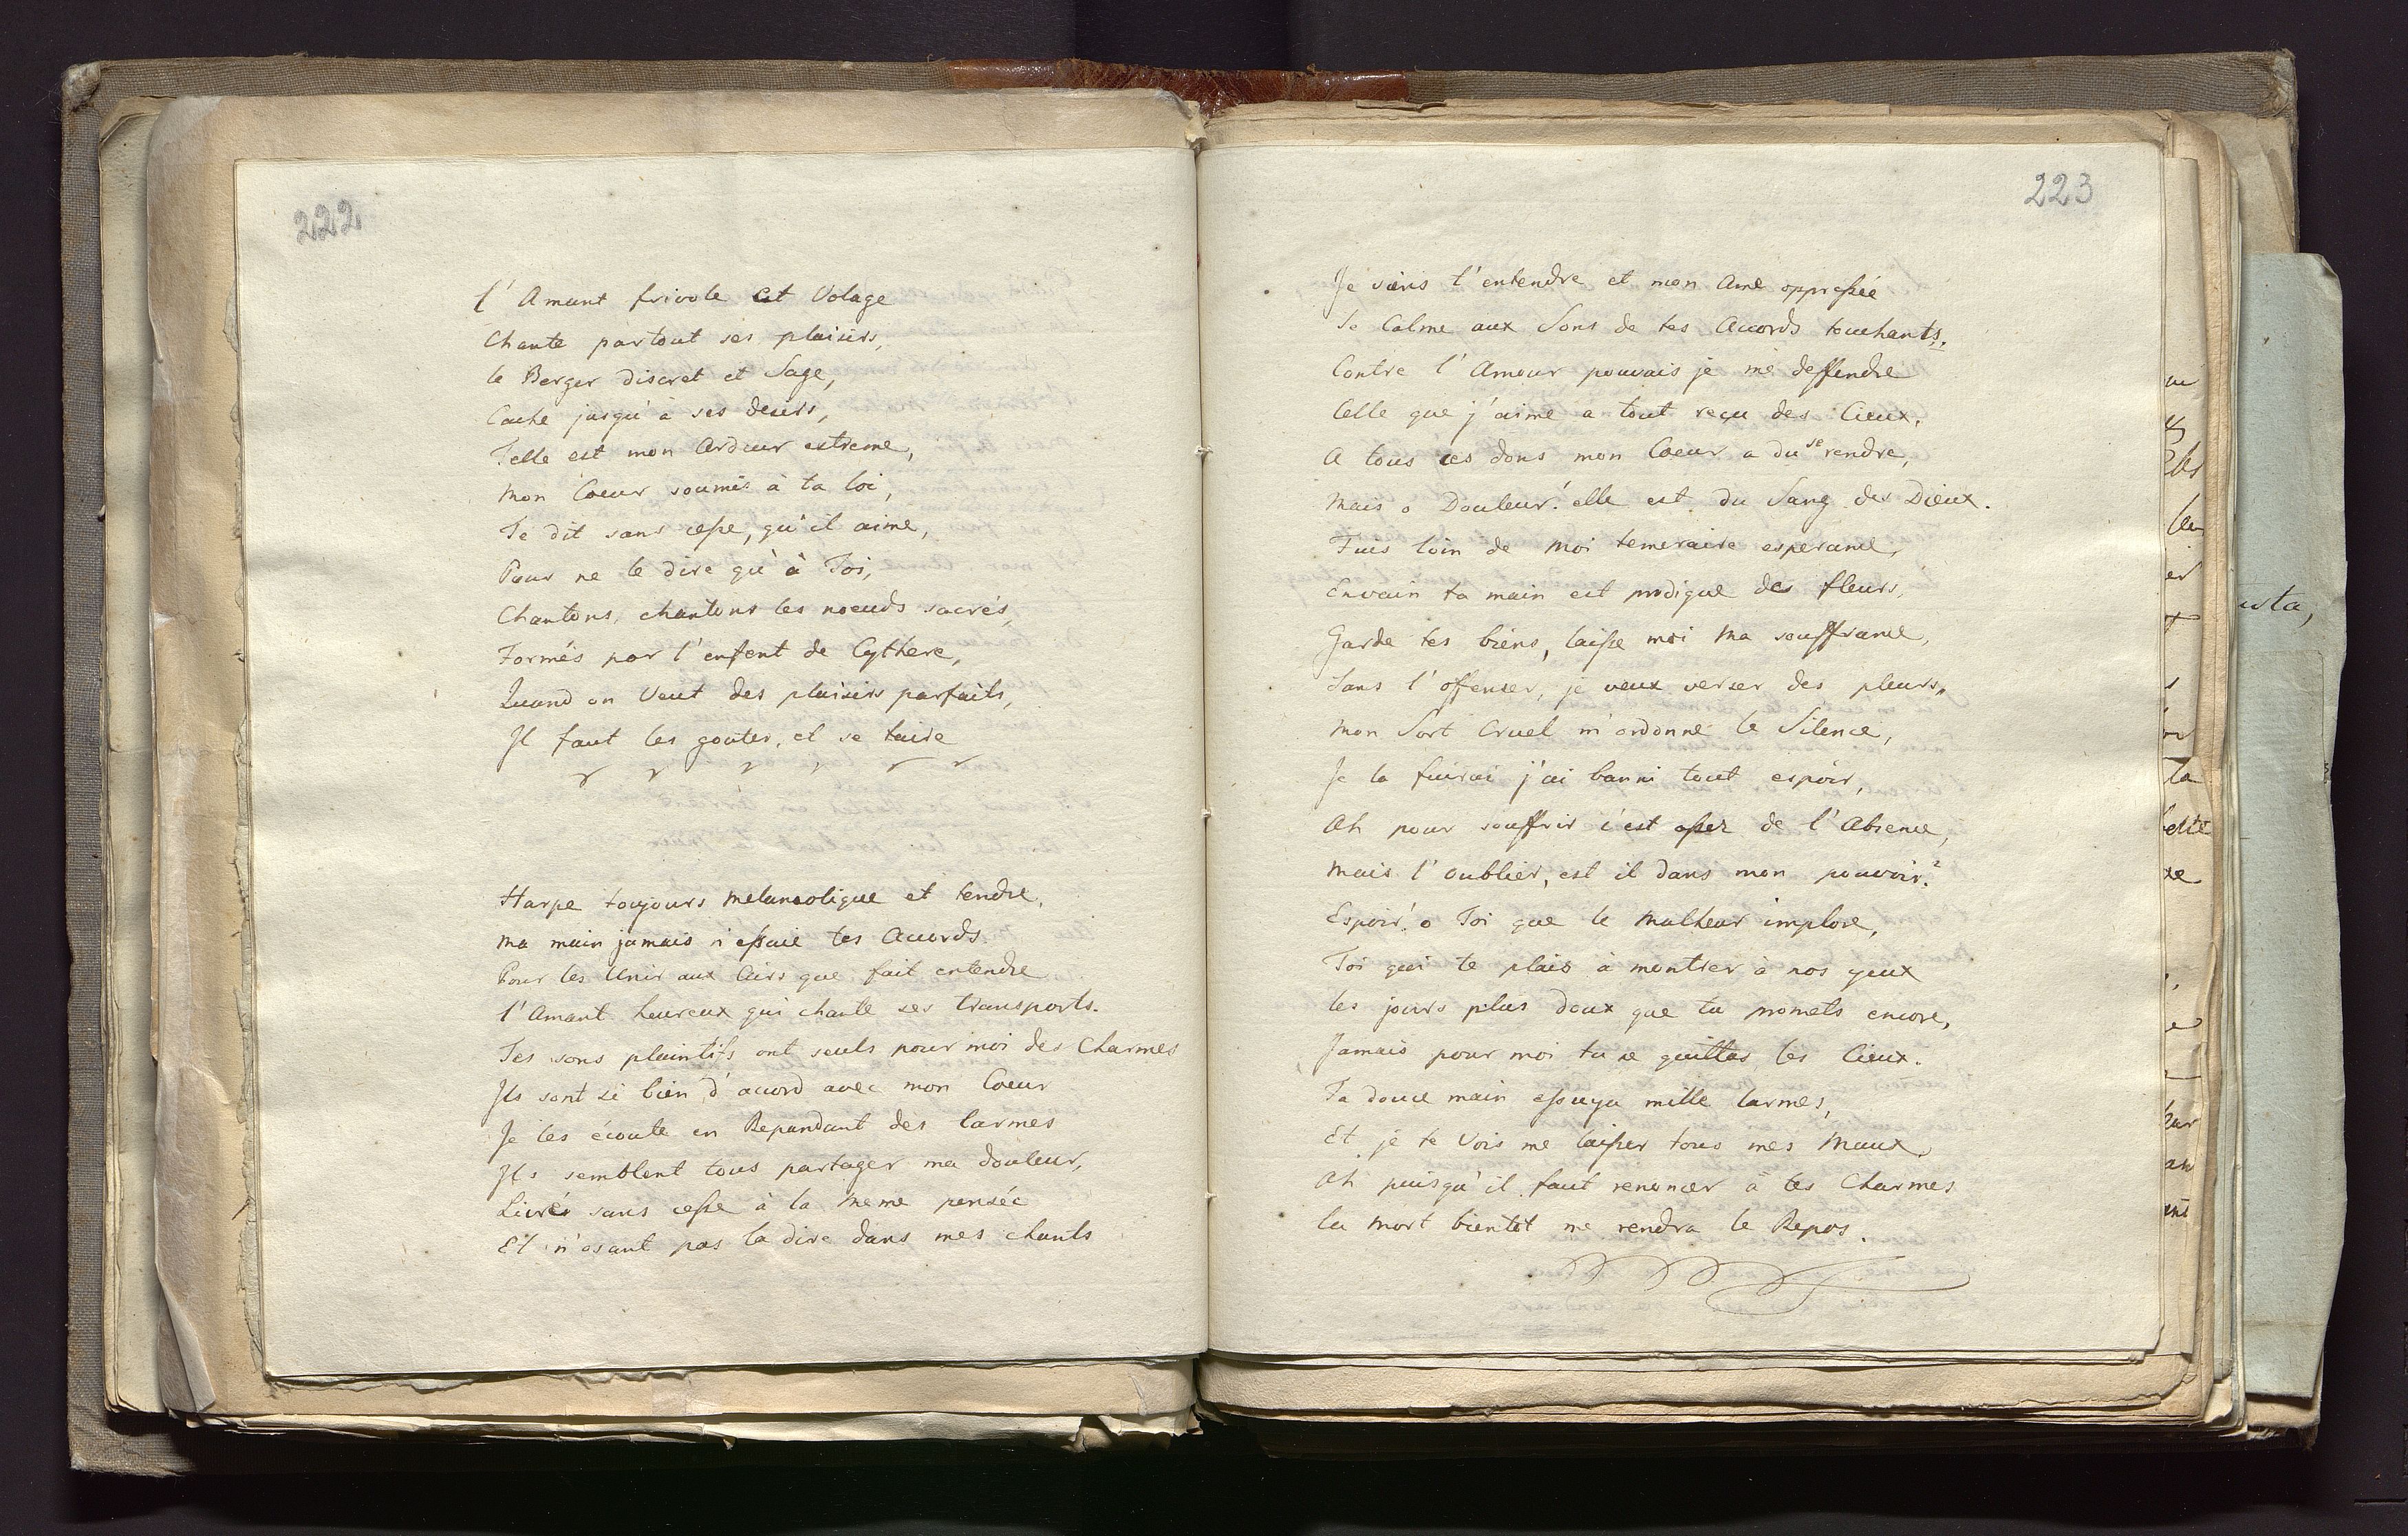 222
l'Amant frivole et Volage
Chante partout ses plaisirs,
le Berger discret et Sage,
Cache jusqu'à ses desirs,
Telle est mon Ardeur extreme,
Mon Coeur soumis à ta loi,
Te dit sans cesse, qu'il aime,
Pour ne le dire qu'à Toi,
Chantons, chantons les noeuds sacrés,
Formés par l'enfent de Cythere,
Quand on Veut des plaisirs parfaits,
Il faut les gouter, et se taire
Harpe toujours melancolique et tendre,
Ma main jamais n'essaie tes Acords
Pour les Unir aux Airs que fait entendre
l'Amant heureux qui chante ses transports.
Tes sons plaintifs ont seuls pour moi des Charmes
Ils sont si bien d'acord avec mon Coeur
Je les écoute en Repandant des larmes
Ils semblent tous partager ma douleur,
Livré sans cesse à la meme pensée
Et n'osant pas la dire dans mes chants
223
Je viens t'entendre et mon Ame oppressée
Se Calme aux Sons de tes Acords touchants.
Contre l'Amour pouvais je me deffendre
Celle que j'aime a tout reçu des Cieux,
A tous ces dons mon Coeur a du se rendre,
Mais o Douleur! elle est du Sang des Dieux.
Fuis loin de Moi temeraire esperance,
Envain ta main est prodigue des fleurs,
Garde tes biens, laisse moi Ma souffrance,
Sans l'offenser, je veux verser des pleurs,
Mon Sort Cruel m'ordonne le Silence,
Je la fuirai j'ai banni tout espoir,
Ah pour souffrir c'est assez de l'Absence,
Mais l'oublier, est il dans mon pouvoir?
Espoir! o Toi que le Malheur implore,
Toi qui te plais à montrer à nos yeux
les jours plus doux que tu promets encore,
Jamais pour moi tu ne quittas les Cieux.
Ta douce main essuya mille larmes,
Et je te Vois me laisser tous mes Maux,
Ah puisqu'il faut renoncer à tes Charmes
la Mort bientôt me rendra le Repos.